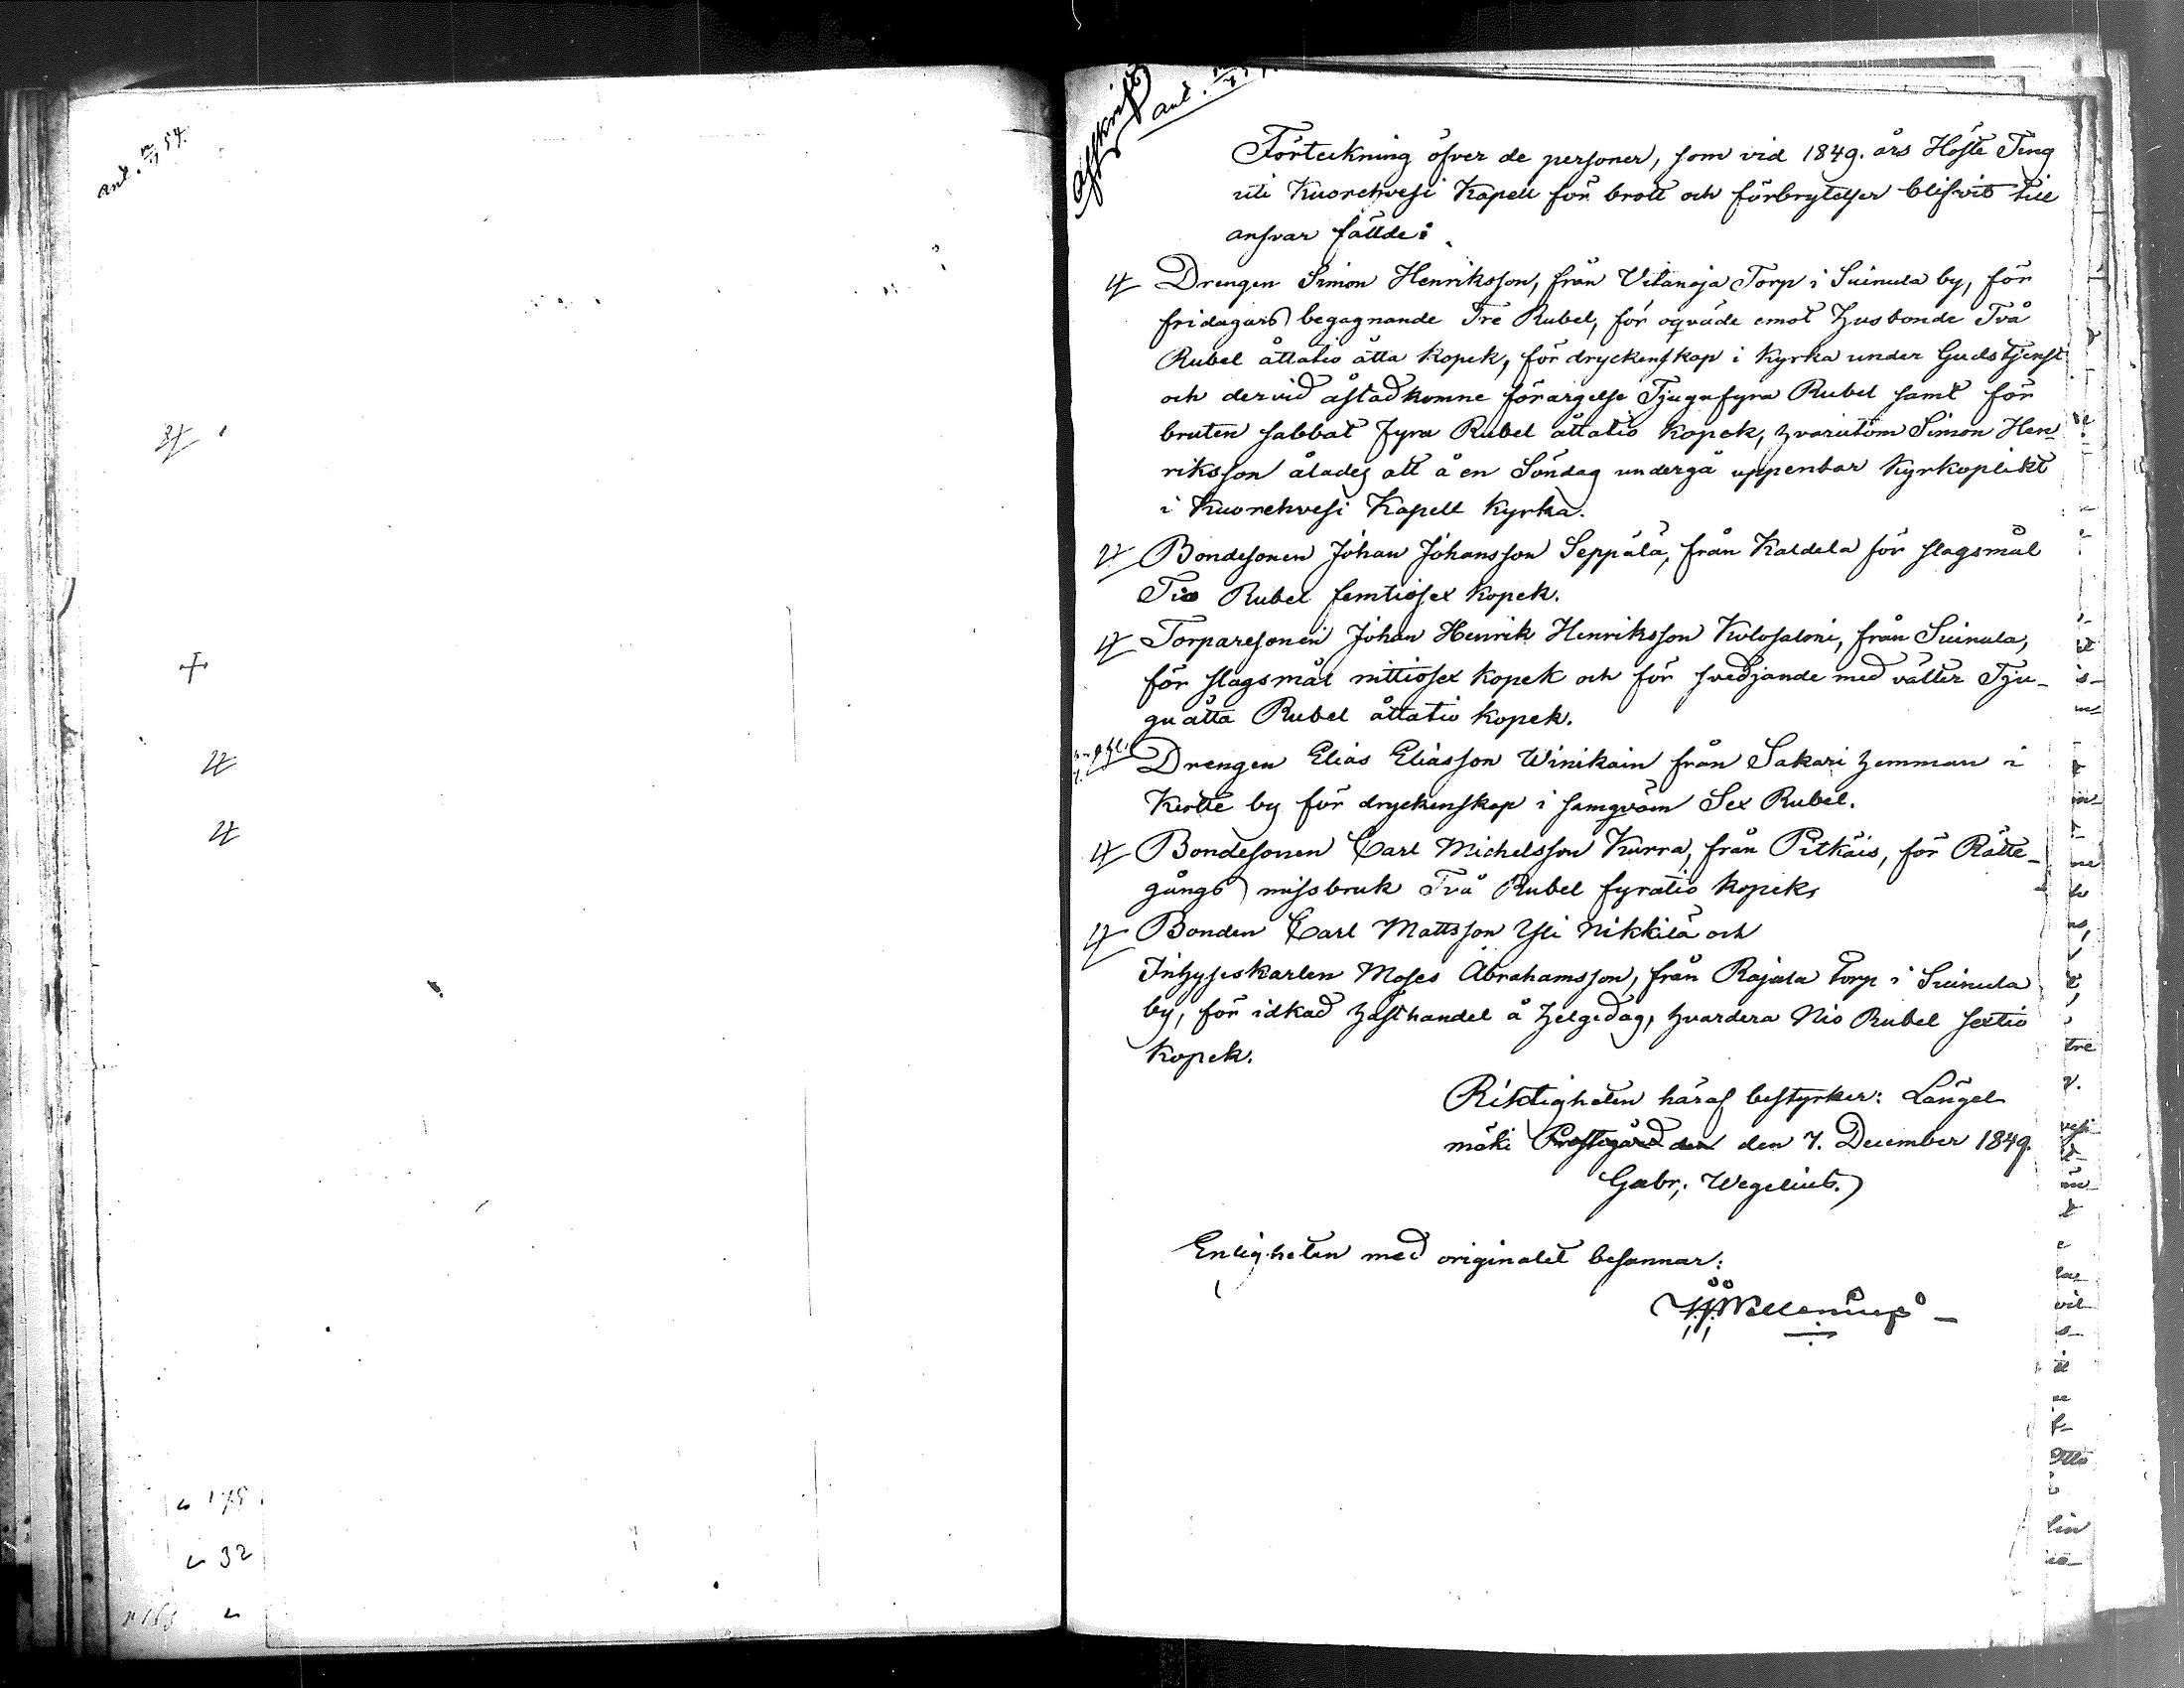 Afskrift
anl.
anl. 54.
Förteckning öfver de personer, som vid 1849. års Höste Ting
uti Kuorehvesi Kapell för brott och förbrytelser blifvit till
ansvar fällde:
Drengen Simon Henriksson, från Vitanoja Torp i Suinula by, för
fridagars begagnande Tre Rubel, för oqväde emot Husbonde Två
Rubel åttatio åtta Kopek, för dryckenskap i Kyrka under Gudstjenst
och dervid åstadkomne förargelse Tjugufyra Rubel samt för
bruten sabbat Fyra Rubel åttatio Kopek, hvarutom Simon Hen-
riksson ålades att å en Söndag undergå uppenbar Kyrkoplikt
i Kuorehvesi Kapell Kyrka.
Bondesonen Johan Johansson Seppälä, från Kaldela för slagsmål
Tio Rubel femtiosex Kopek.
Torparesonen Johan Henrik Henriksson Kulosaloni, från Suinula,
för slagsmål nittiosex Kopek och för svedjande med välter Tju-
guåtta Rubel åttatio Kopek.
Drengen Elias Eliasson Winikain från Sakari hemman i
Kertte by för dryckenskap i samqväm Sex Rubel.
Bondesonen Carl Michelsson Kurra, från Pitkäis, för Rätte-
gångs missbruk Två Rubel fyratio Kopek,
Bonden Carl Mattsson Yli Nikkilä och
Inhyseskarlen Moses Abrahamsson, från Rajala Torp i Suinula
by, för idkad hästhandel å helgedag, hvardera Nio Rubel sextio
Kopek.
Riktigheten häraf bestyrker: Längel-
mäki Prostegård den den 7. December 1849.
Gabr. Wegelius.
Enligheten med originalet besannar:
175
32